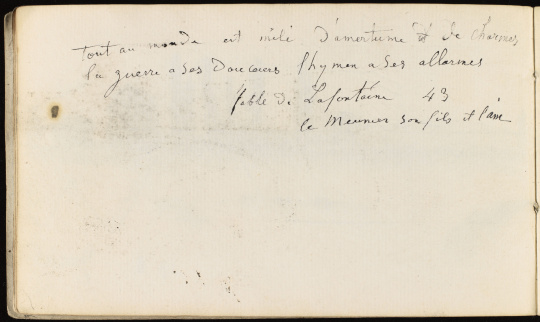 tout au monde est mêlé d'amertume et de charmes
la guerre a ses Douceurs l'hymen a ses allarmes
fable de Lafontaine 43
le Meunier son fils et l'ane